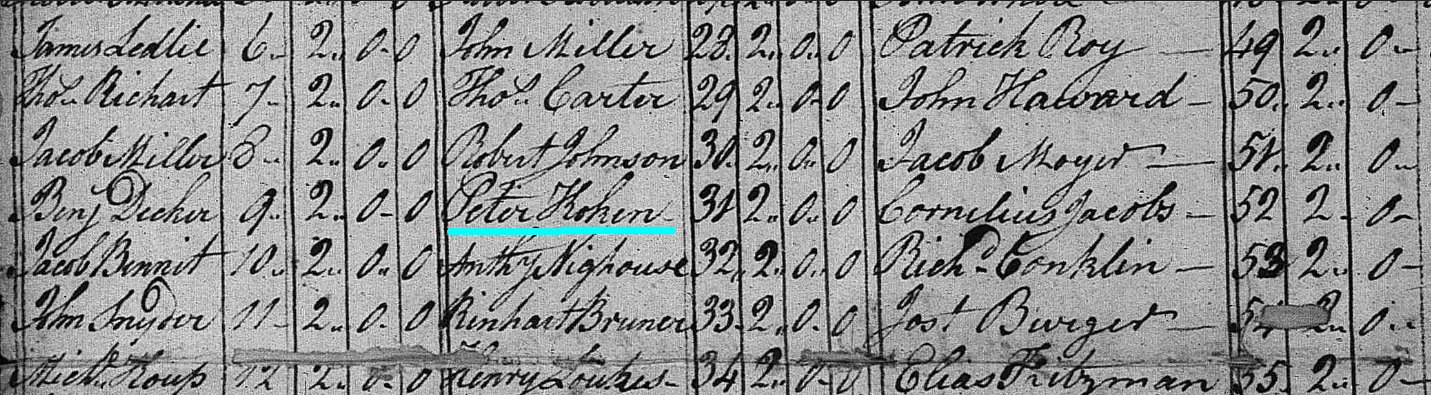 James Ledlie 6 2 0 0 John Miller 28 2 0 0 Patrick Roy 49 2 0
Tho.s Richart 7 2 0 0 Tho.s Carter 29 2 0 0 John Haward 50 2 0
Jacob Miller 8 2 0 0 Robert Johnson 30 2 0 0 Jacob Moyer 51 2 0
Benj Decker 9 2 0 0 Peter Koken 31 2 0 0 Cornelius Jacobs 52 2 0
Jacob Binnit 10 2 0 0 Anthy Nighouse 32 2 0 0 Rich.d Conklin 53 2 0
John Snyder 11 2 0 0 Rinhart Bruner 33 2 0 0 Jost Burger 54 2 0
Mich.l Roup 12 2 0 0 Henry Loukes 34 2 0 0 Elias Fritzman 55 2 0